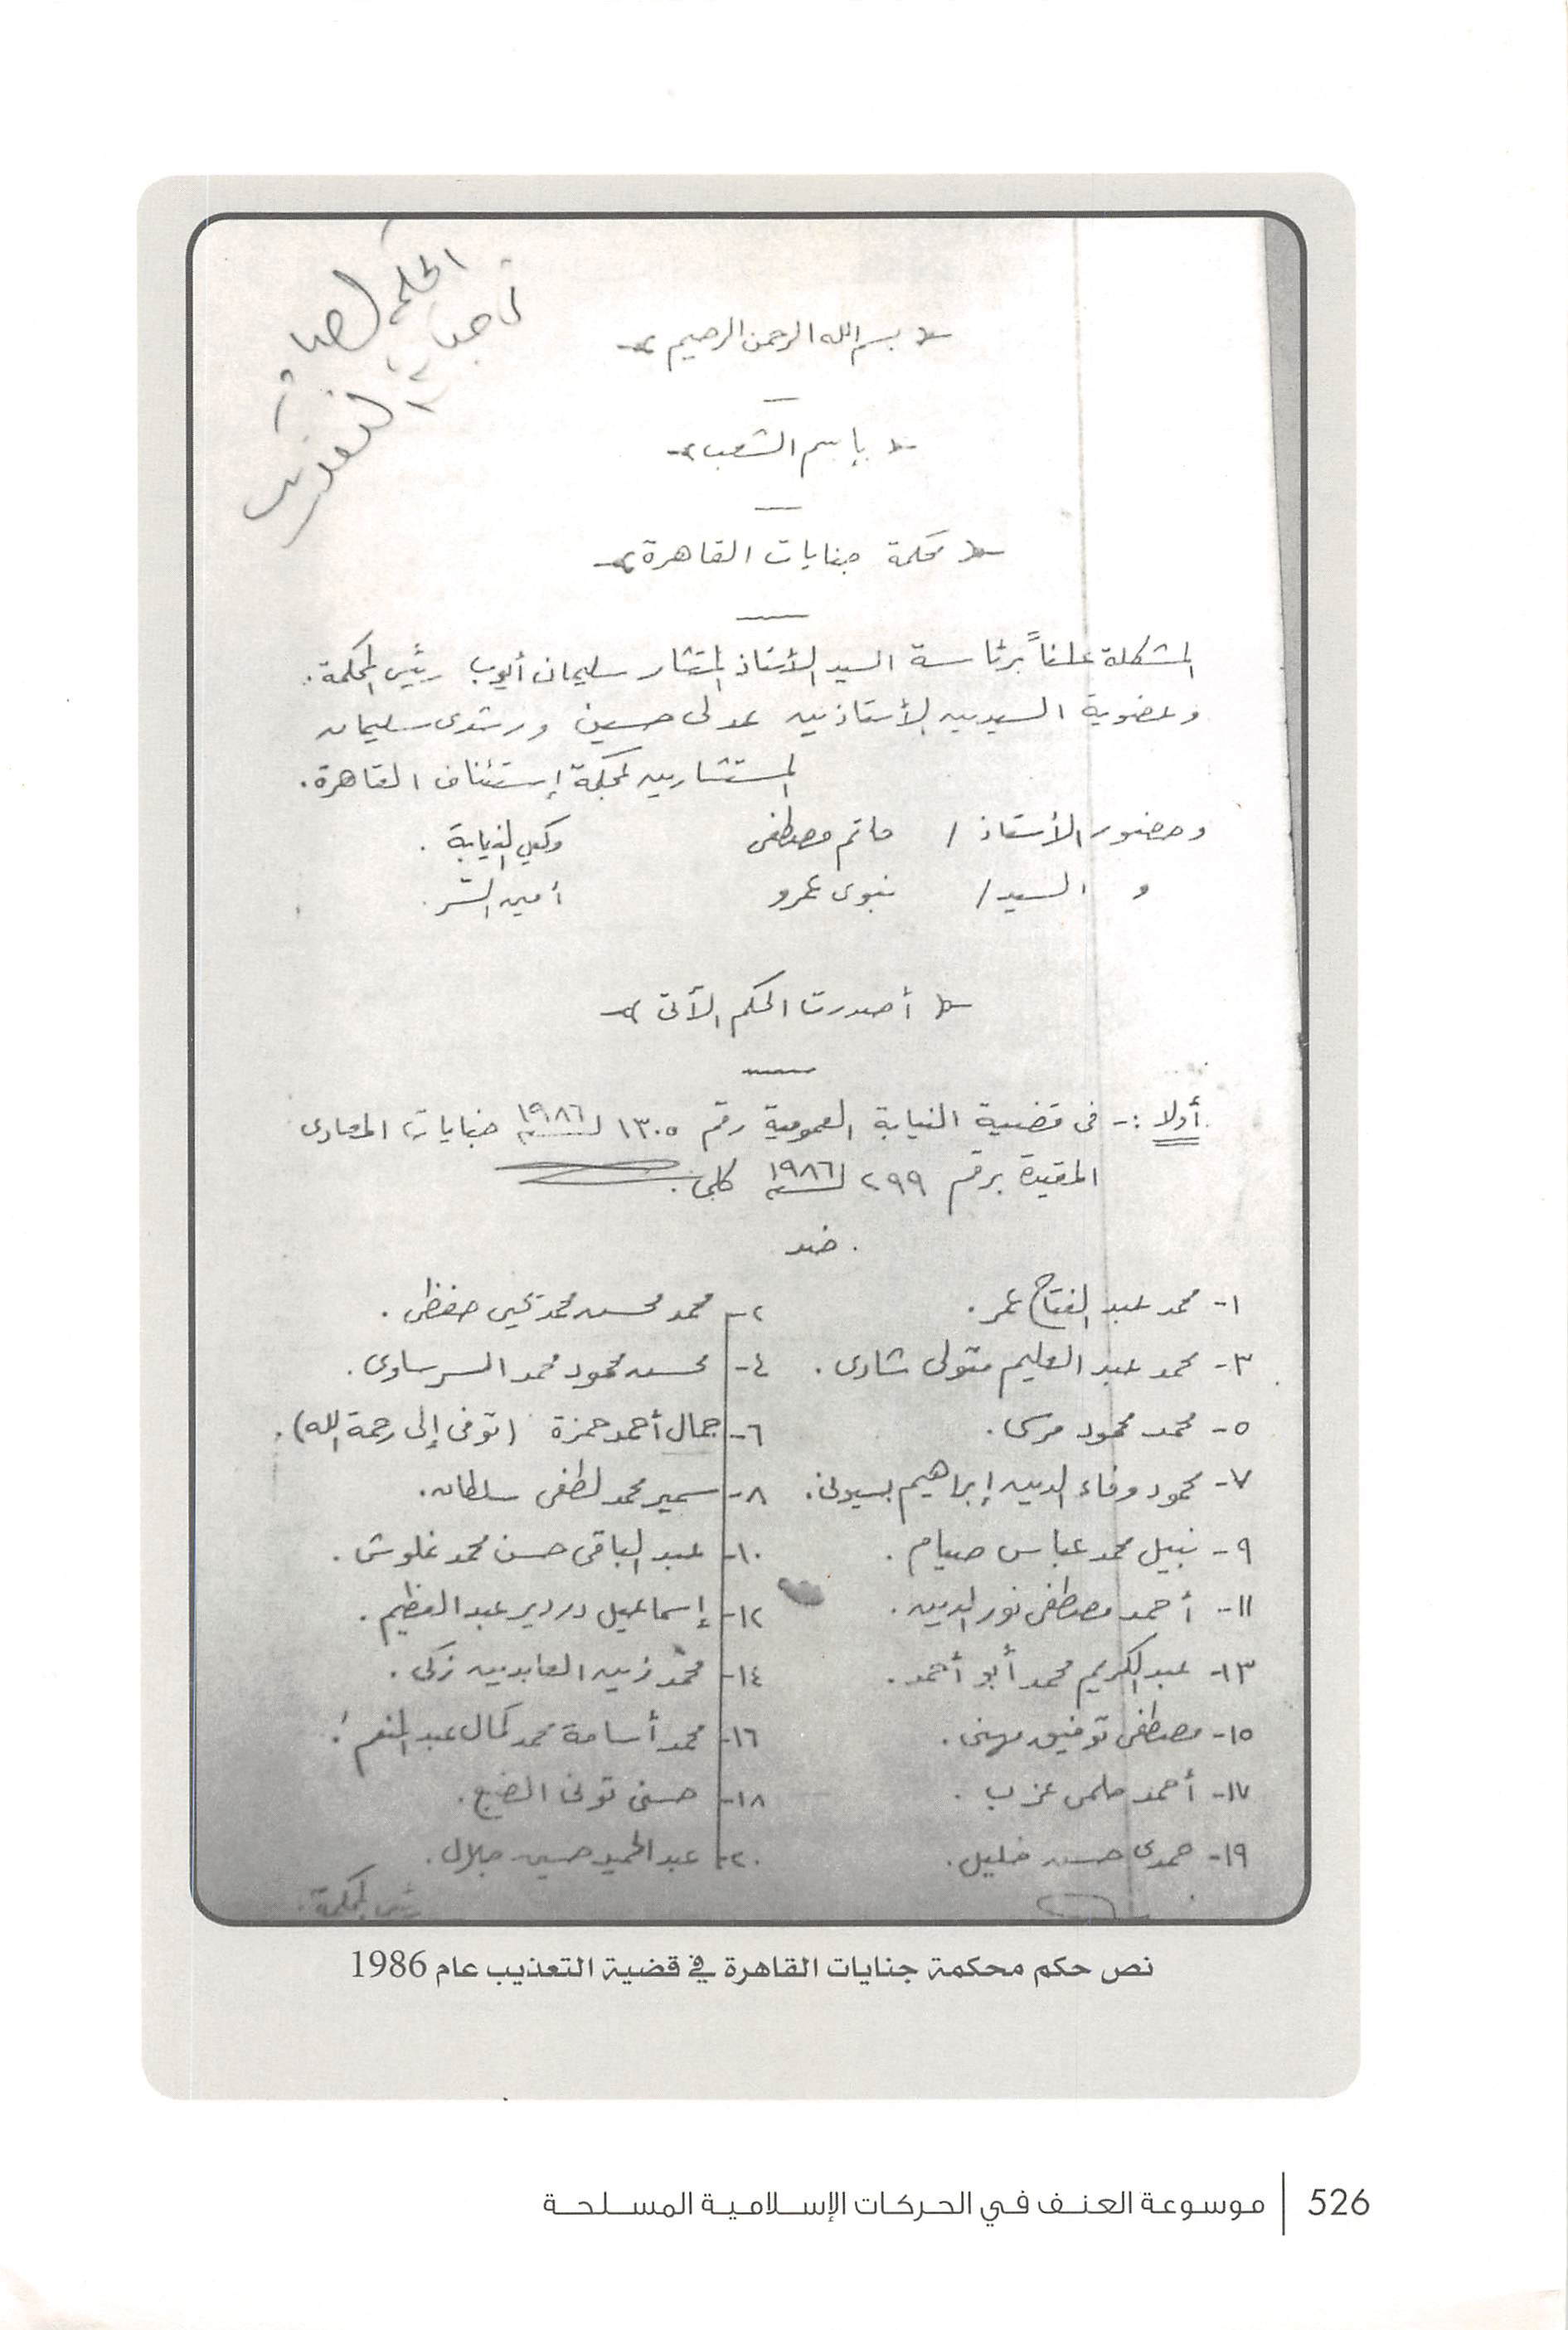 الحكم الصادر
بسم الله الرحمن الرحيم
بإسم الشعب
محكمة جنايات القاهرة
المشكلة علناً برئاسة السيد الأستاذ المستشار سليمان أيوب رئيس المحكمة.
وعضوية السيدين الأستاذين عدلى حسين ورشدى سليمان
المستشارين بمحكمة إستئناف القاهرة.
وحضور الأستاذ / حاتم مصطفى وكيل النيابة.
و السيد / نبوى عمرو أمين السر.
أصدرت الحكم الآتى
أولا :- فى قضية النيابة العمومية رقم ١٣٠٥ لسنة ١٩٨٦ جنايات المعادى
المقيدة برقم ٢٩٩ لسنة ١٩٨٦ كلى.
ضد
١- محمد عبد الفتاح عمر. ٢- محمد محسن محمد يحيى حفظى.
٣- محمد عبد العليم متولى شادى. ٤- محسن محمود محمد السرساوى.
٥- محمد محمود مرسى. ٦- جمال أحمد حمزة (توفى إلى رحمة الله).
٧- محمود وفاء الدين إبراهيم بسيونى. ٨- سمير محمد لطفى سلطان.
٩- نبيل محمد عباس صيام. ١٠- عبد الباقى حسن محمد غلوش.
١١- أحمد مصطفى نور الدين. ١٢- إسماعيل دردير عبد العظيم.
١٣- عبد الكريم محمد أبو أحمد. ١٤- محمد زين العابدين زكى.
١٥- مصطفى توفيق مهنى. ١٦- محمد أسامة محمد كمال عبد المنعم.
١٧- أحمد حلمى عزب. ١٨- حسنى تونى الضبع.
١٩- حمدى حسن خليل. ٢٠- عبد الحميد حسين جلال.
رئيس المحكمة.
نص حكم محكمة جنايات القاهرة في قضية التعذيب عام 1986
526 | موسوعة العنف في الحركات الإسلامية المسلحة